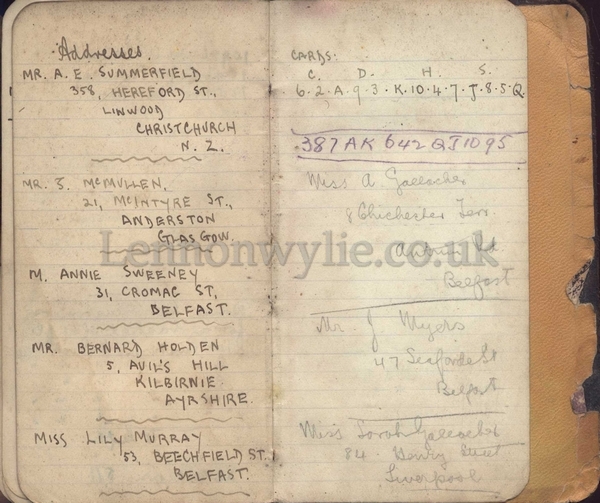 Addresses.
MR. A. E. SUMMERFIELD
358, HEREFORD ST.,
LINWOOD
CHRISTCHURCH
N. Z.
MR. J. McMULLEN,
21, McINTYRE ST.,
ANDERSTON
GLASGOW.
M. ANNIE SWEENEY
31, CROMAC ST,
BELFAST.
MR. BERNARD HOLDEN
5, AVIL'S HILL
KILBIRNIE
AYRSHIRE.
MISS LILY MURRAY
53, BEECHFIELD ST.
BELFAST.
CARDS:
C. D. H. S.
6.2.A.9.3.K.10.4.7.J.8.5.Q.
387AK642QJ1095
Miss A Gallocher
8 Chichester Terr
Antrim Rd
Belfast
Mr. J Myers
47 Seaforde St
Belfast
Miss Sarah Gallocher
84 Henry Street
Liverpool
Lennonwylie.co.uk